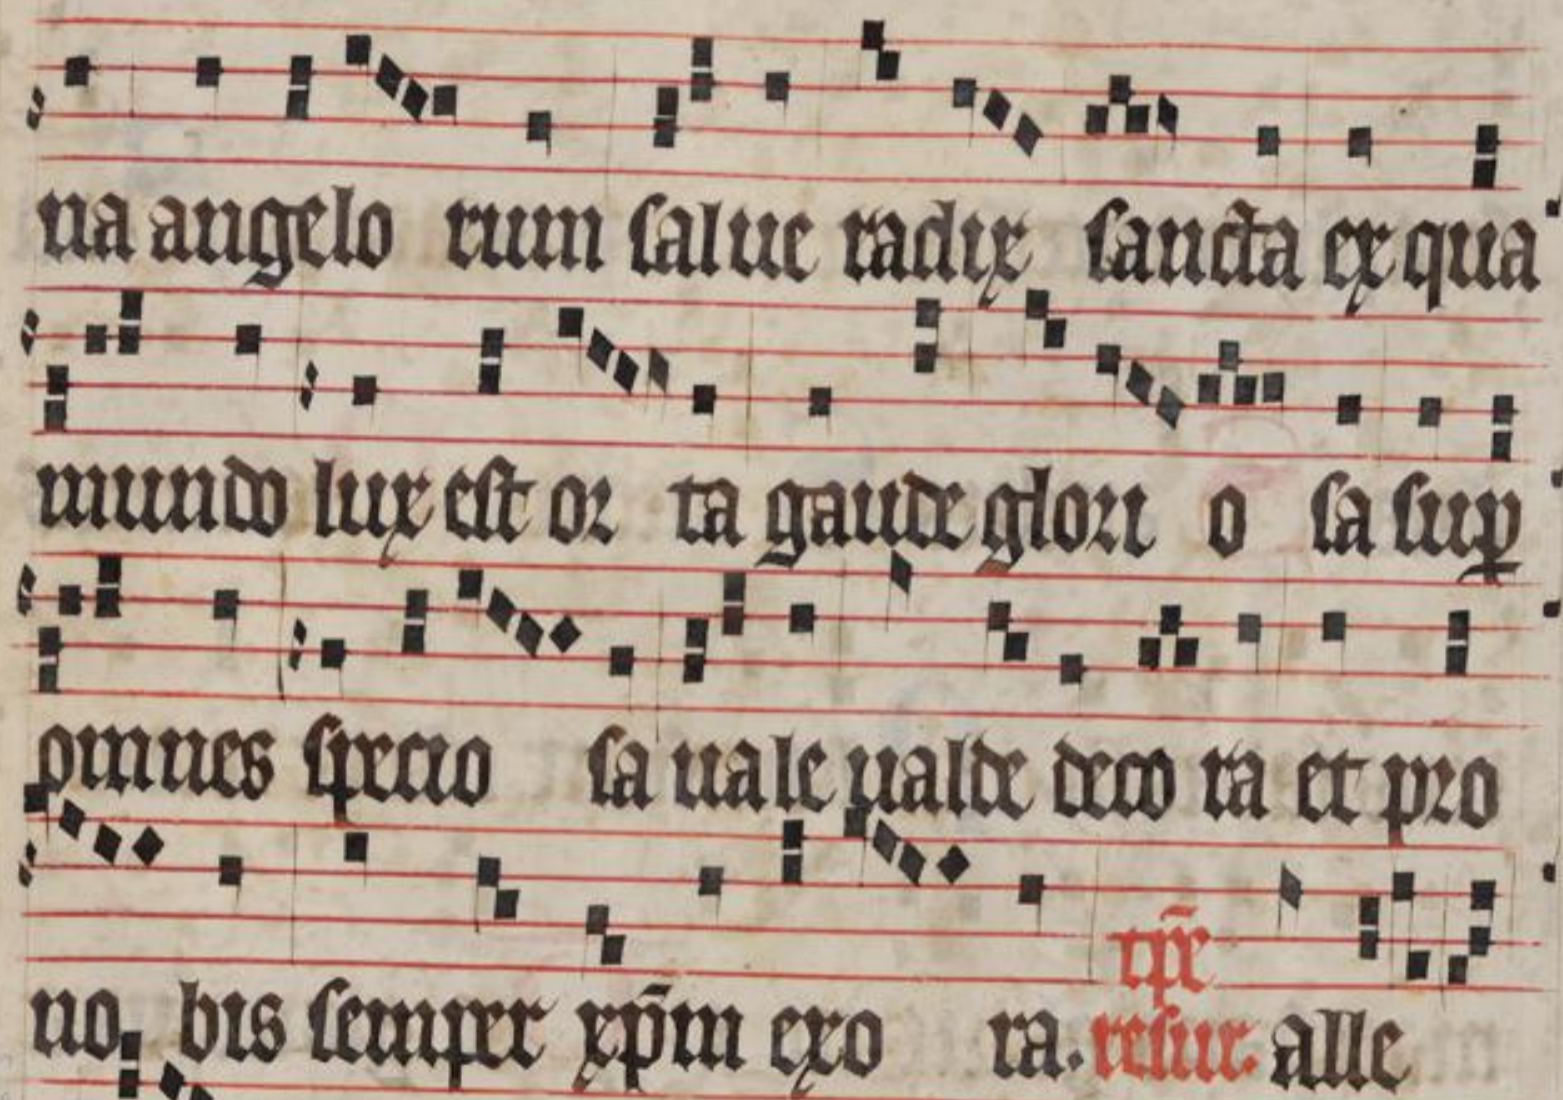 na angelo rum salue radix sancta ex qua
mundo lux est or ta gaude glori o sa sup
omnes specio sa uale ualde deco ra et pro
no bis semper xp̄m exo ra. tp̄r resur. alle